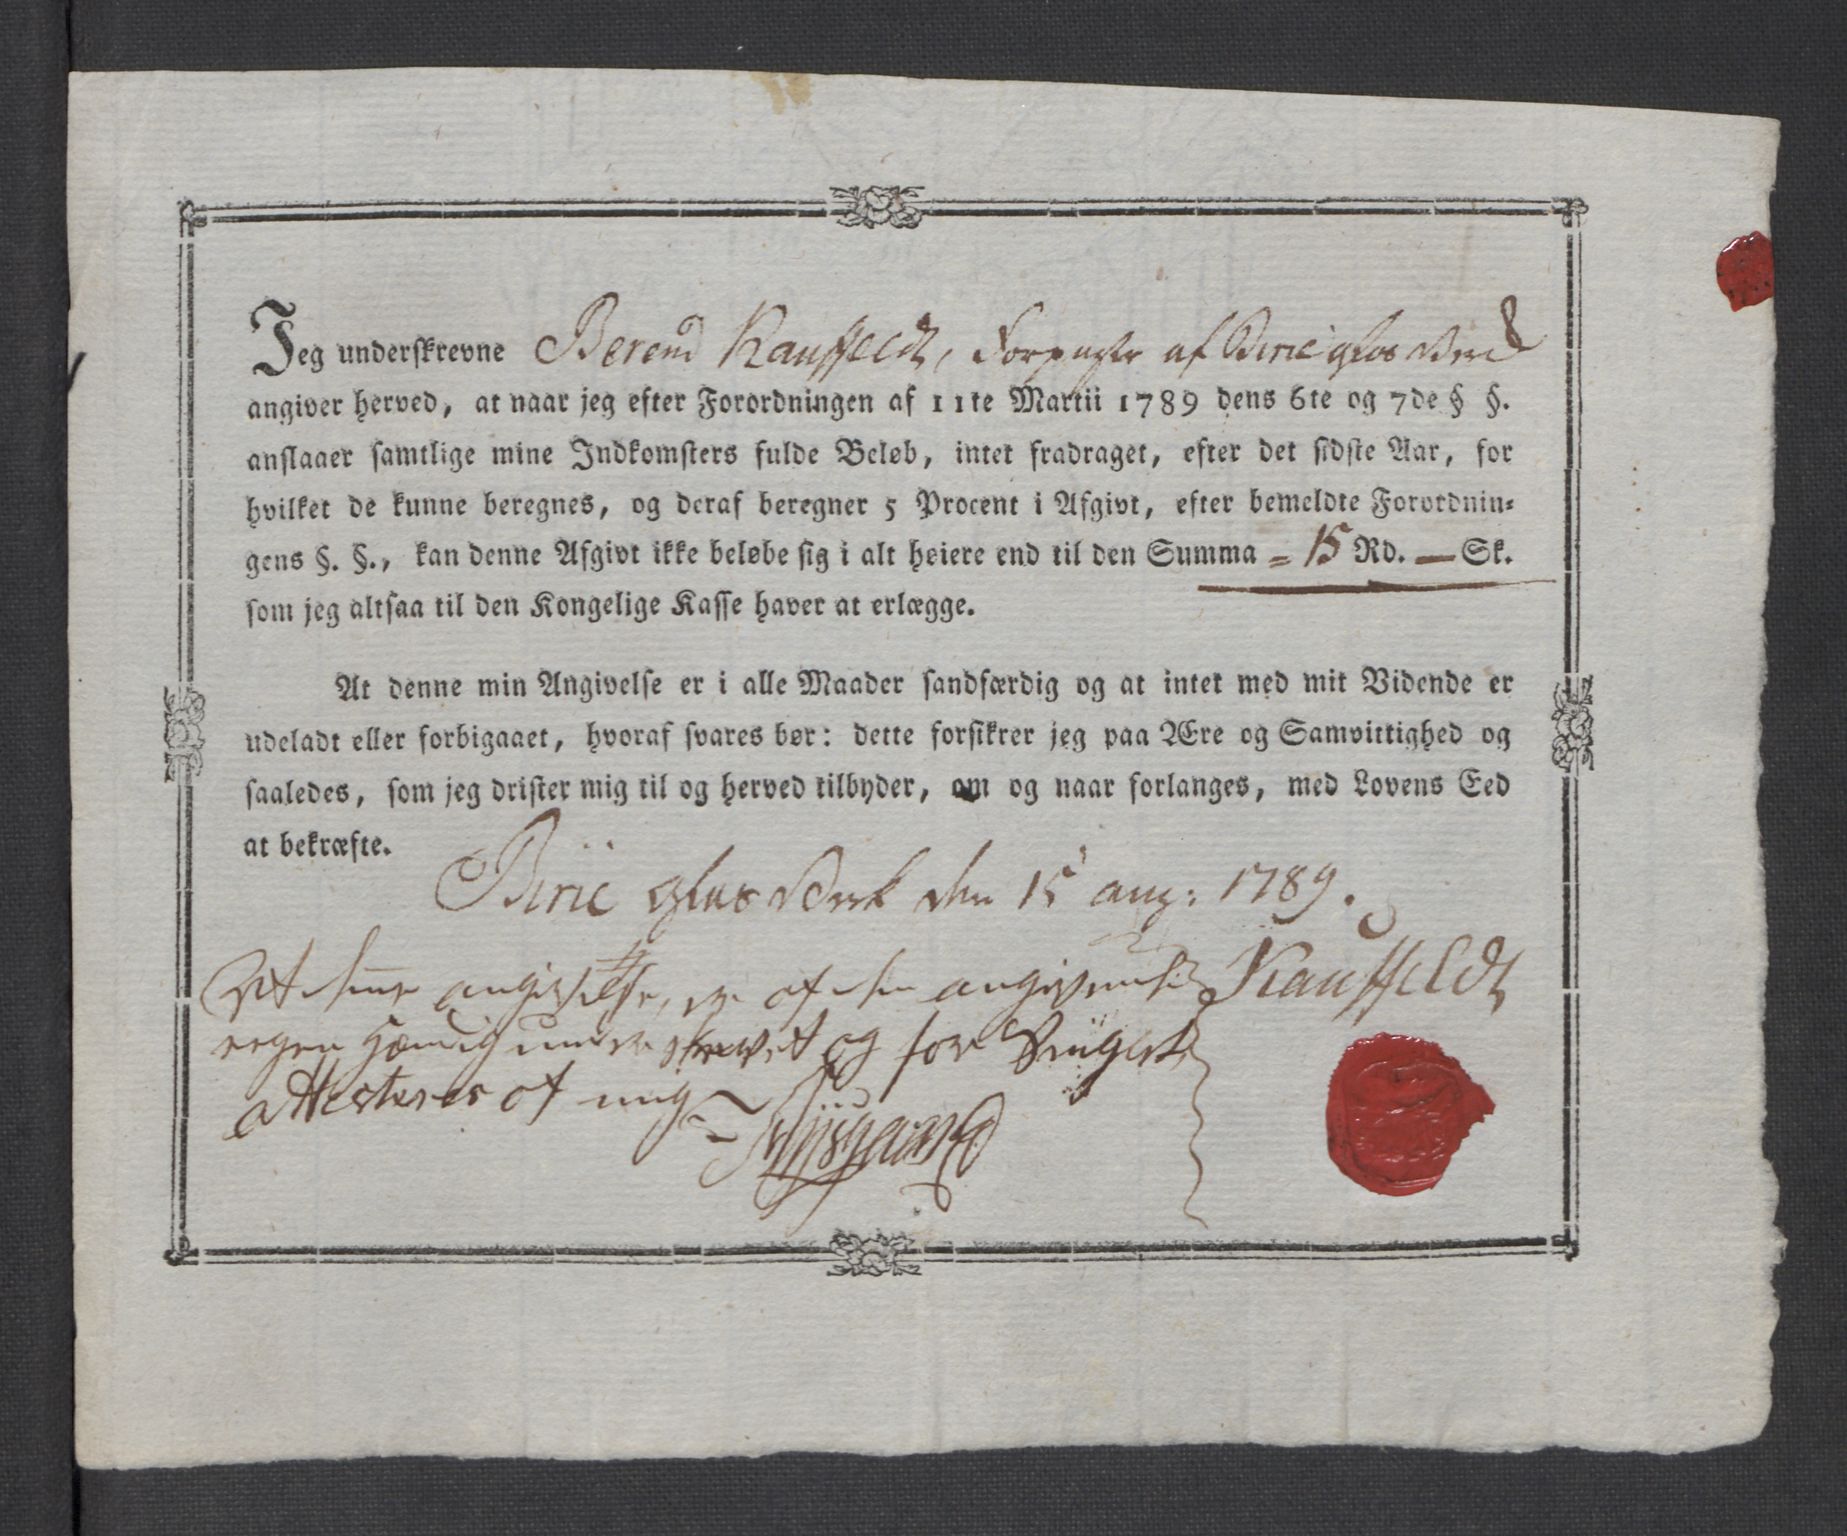 Jeg underskrevne Berend Kauffeldt, Forpagter af Birie glas Verk
angiver herved, at naar jeg efter Forordningen af 11te Martii 1789 dens 6te og 7de § §.
anslaaer samtlige mine Indkomsters fulde Beløb, intet fradraget, efter det sidste Aar, for
hvilket de kunne beregnes, og deraf beregner 5 Procent i Afgivt, efter bemeldte Forordnin=
gens §. §., kan denne Afgivt ikke beløbe sig i alt høiere end til den Summa = 15 Rd. — Sk.
som jeg altsaa til den Kongelige Kasse haver at erlægge.
At denne min Angivelse er i alle Maader sandfærdig og at intet med mit Vidende er
udeladt eller forbigaaet, hvoraf svares bør: dette forsikrer jeg paa Ære og Samvittighed og
saaledes, som jeg drister mig til og herved tilbyder, om og naar forlanges, med Lovens Eed
at bekræfte.
Birie glas Verk den 15 aug: 1789.
Kauffeldt
At denne angivelse, er af den angivendes
egen Hændig underskrevet og for
attesteres af mig